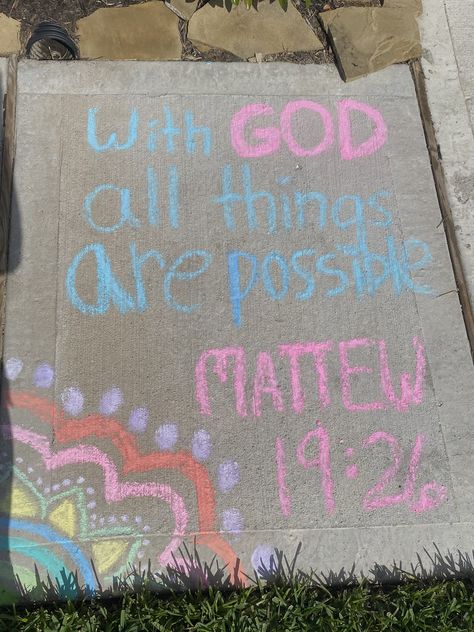 With GOD
all things
are possible
MATTHEW
19:26